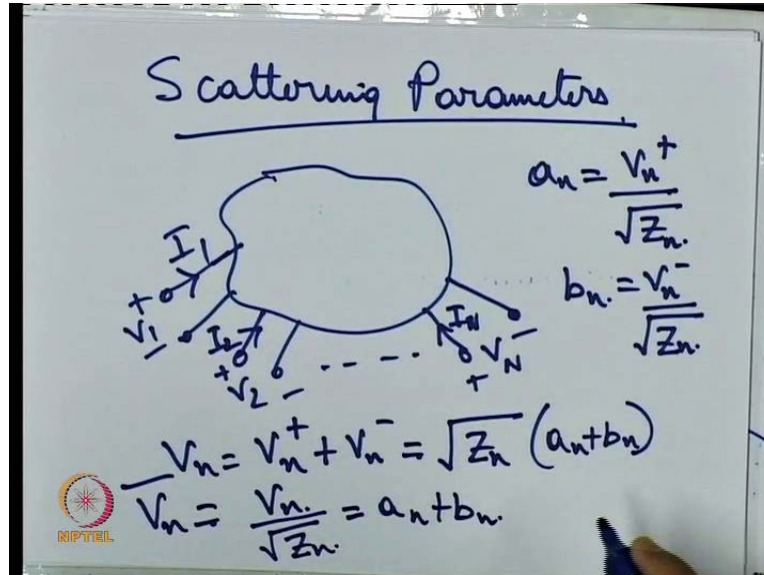 Scattering Parameters.
aₙ = Vₙ⁺ / √Zₙ.
bₙ. = Vₙ⁻ / √Zₙ.
I₁
+ V₁ −
I₂
+ V₂ −
- - - - -
I_N
+ V_N −
Vₙ = Vₙ⁺ + Vₙ⁻ = √Zₙ (aₙ+bₙ)
V̅ₙ = Vₙ. / √Zₙ. = aₙ+bₙ.
NPTEL